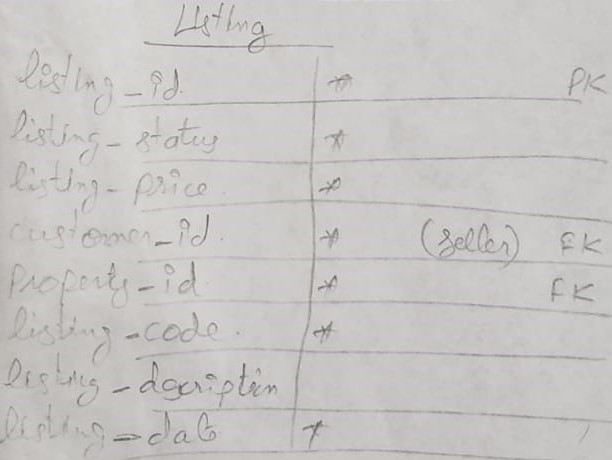 Listing
listing_id * PK
listing_status *
listing_price *
customer_id * (seller) FK
Property_id * FK
listing_code *
listing_description
listing_date *